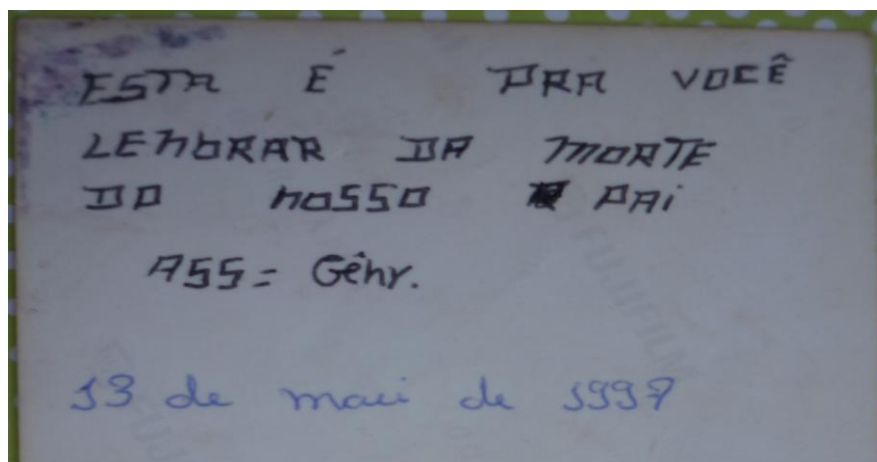 ESTA É PRA VOCÊ
LEMbRAR DA MORTE
DO NOSSO PAi
ASS= Gêny.
13 de mai de 1997
FUJIFILM